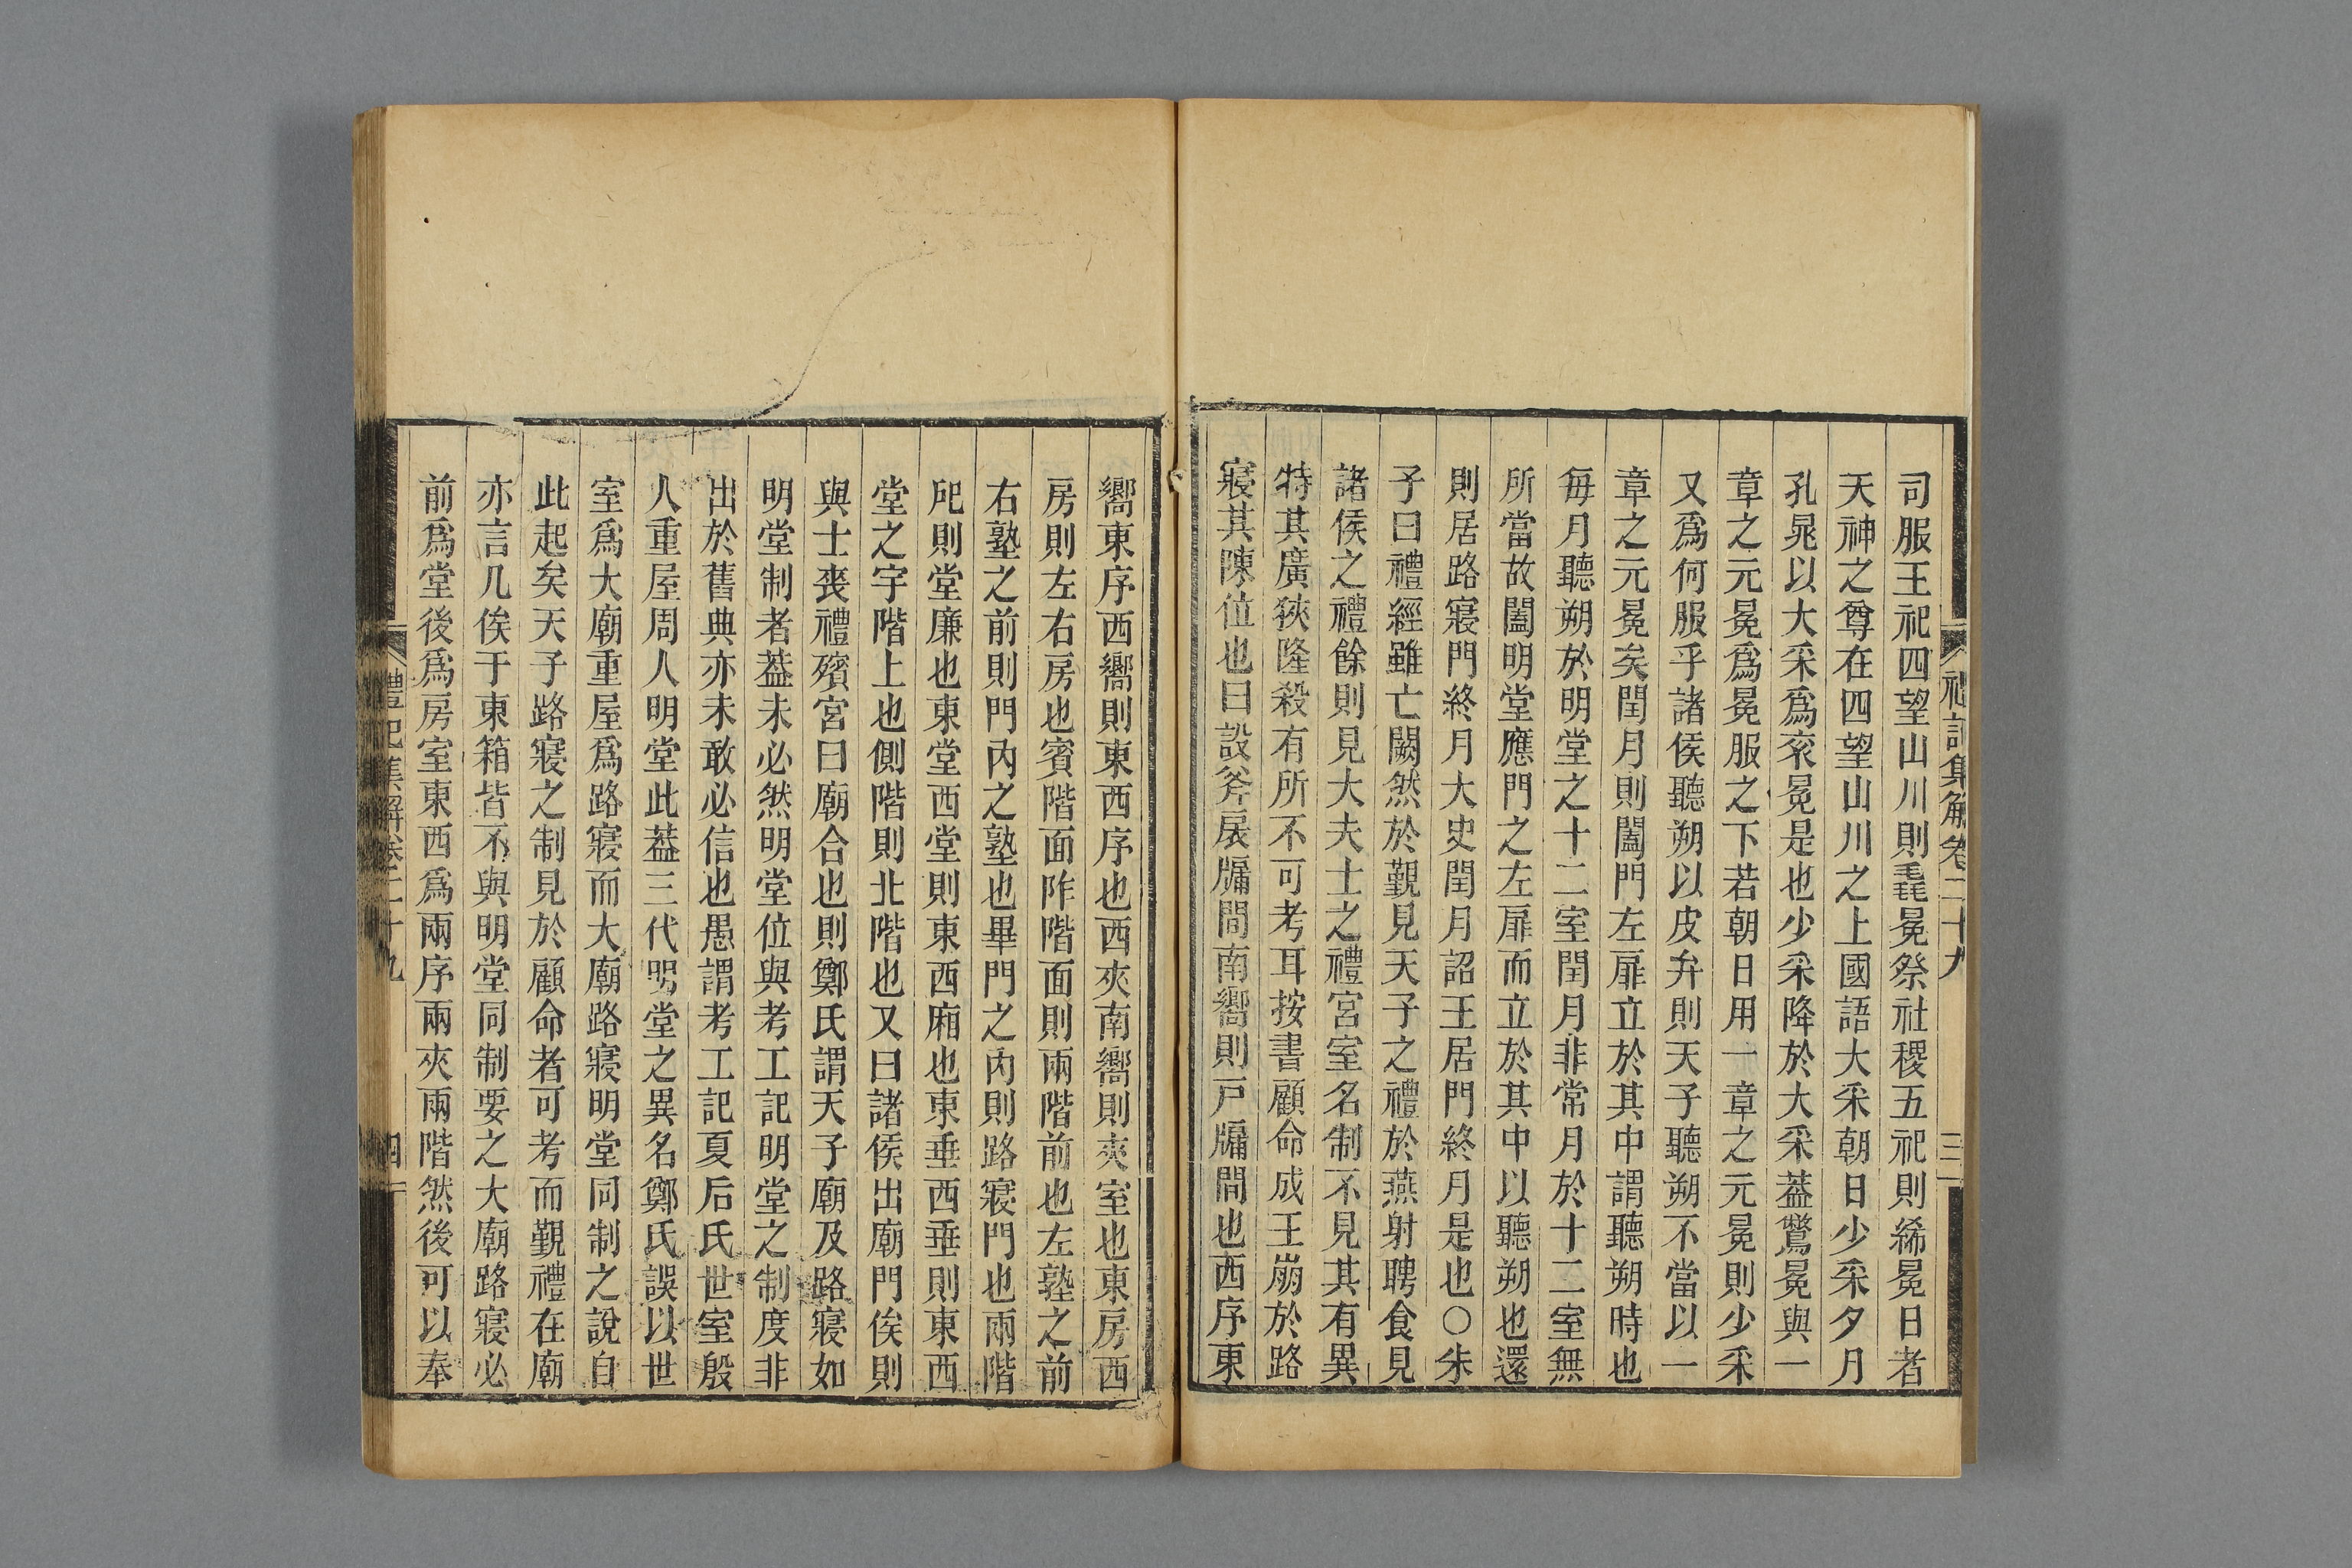 禮記集解卷二十九
三
司服王祀四望山川則毳冕祭社稷五祀則絺冕日者
天神之尊在四望山川之上國語大采朝日少采夕月
孔晁以大采爲袞冕是也少采降於大采葢鷩冕與一
章之元冕爲冕服之下若朝日用一章之元冕則少采
又爲何服乎諸侯聽朔以皮弁則天子聽朔不當以一
章之元冕矣閏月則闔門左扉立於其中謂聽朔時也
毎月聽朔於明堂之十二室閏月非常月於十二室無
所當故闔明堂應門之左扉而立於其中以聽朔也還
則居路寢門終月大史閏月詔王居門終月是也○朱
子曰禮經雖亡闕然於覲見天子之禮於燕射聘食見
諸侯之禮餘則見大夫士之禮宮室名制不見其有異
特其廣狹隆殺有所不可考耳按書顧命成王崩於路
寢其陳位也曰設斧扆牖間南嚮則戸牖間也西序東
嚮東序西嚮則東西序也西夾南嚮則夾室也東房西
房則左右房也賓階面阼階面則兩階前也左塾之前
右塾之前則門內之塾也畢門之內則路寢門也兩階
戺則堂廉也東堂西堂則東西廂也東垂西垂則東西
堂之宇階上也側階則北階也又曰諸侯出廟門俟則
與士喪禮殯宮曰廟合也則鄭氏謂天子廟及路寢如
明堂制者葢未必然明堂位與考工記明堂之制度非
出於舊典亦未敢必信也愚謂考工記夏后氏世室殷
人重屋周人明堂此葢三代明堂之異名鄭氏誤以世
室爲大廟重屋爲路寢而大廟路寢明堂同制之說自
此起矣天子路寢之制見於顧命者可考而覲禮在廟
亦言几俟于東箱皆不與明堂同制要之大廟路寢必
前爲堂後爲房室東西爲兩序兩夾兩階然後可以奉
禮記集解卷二十九
四